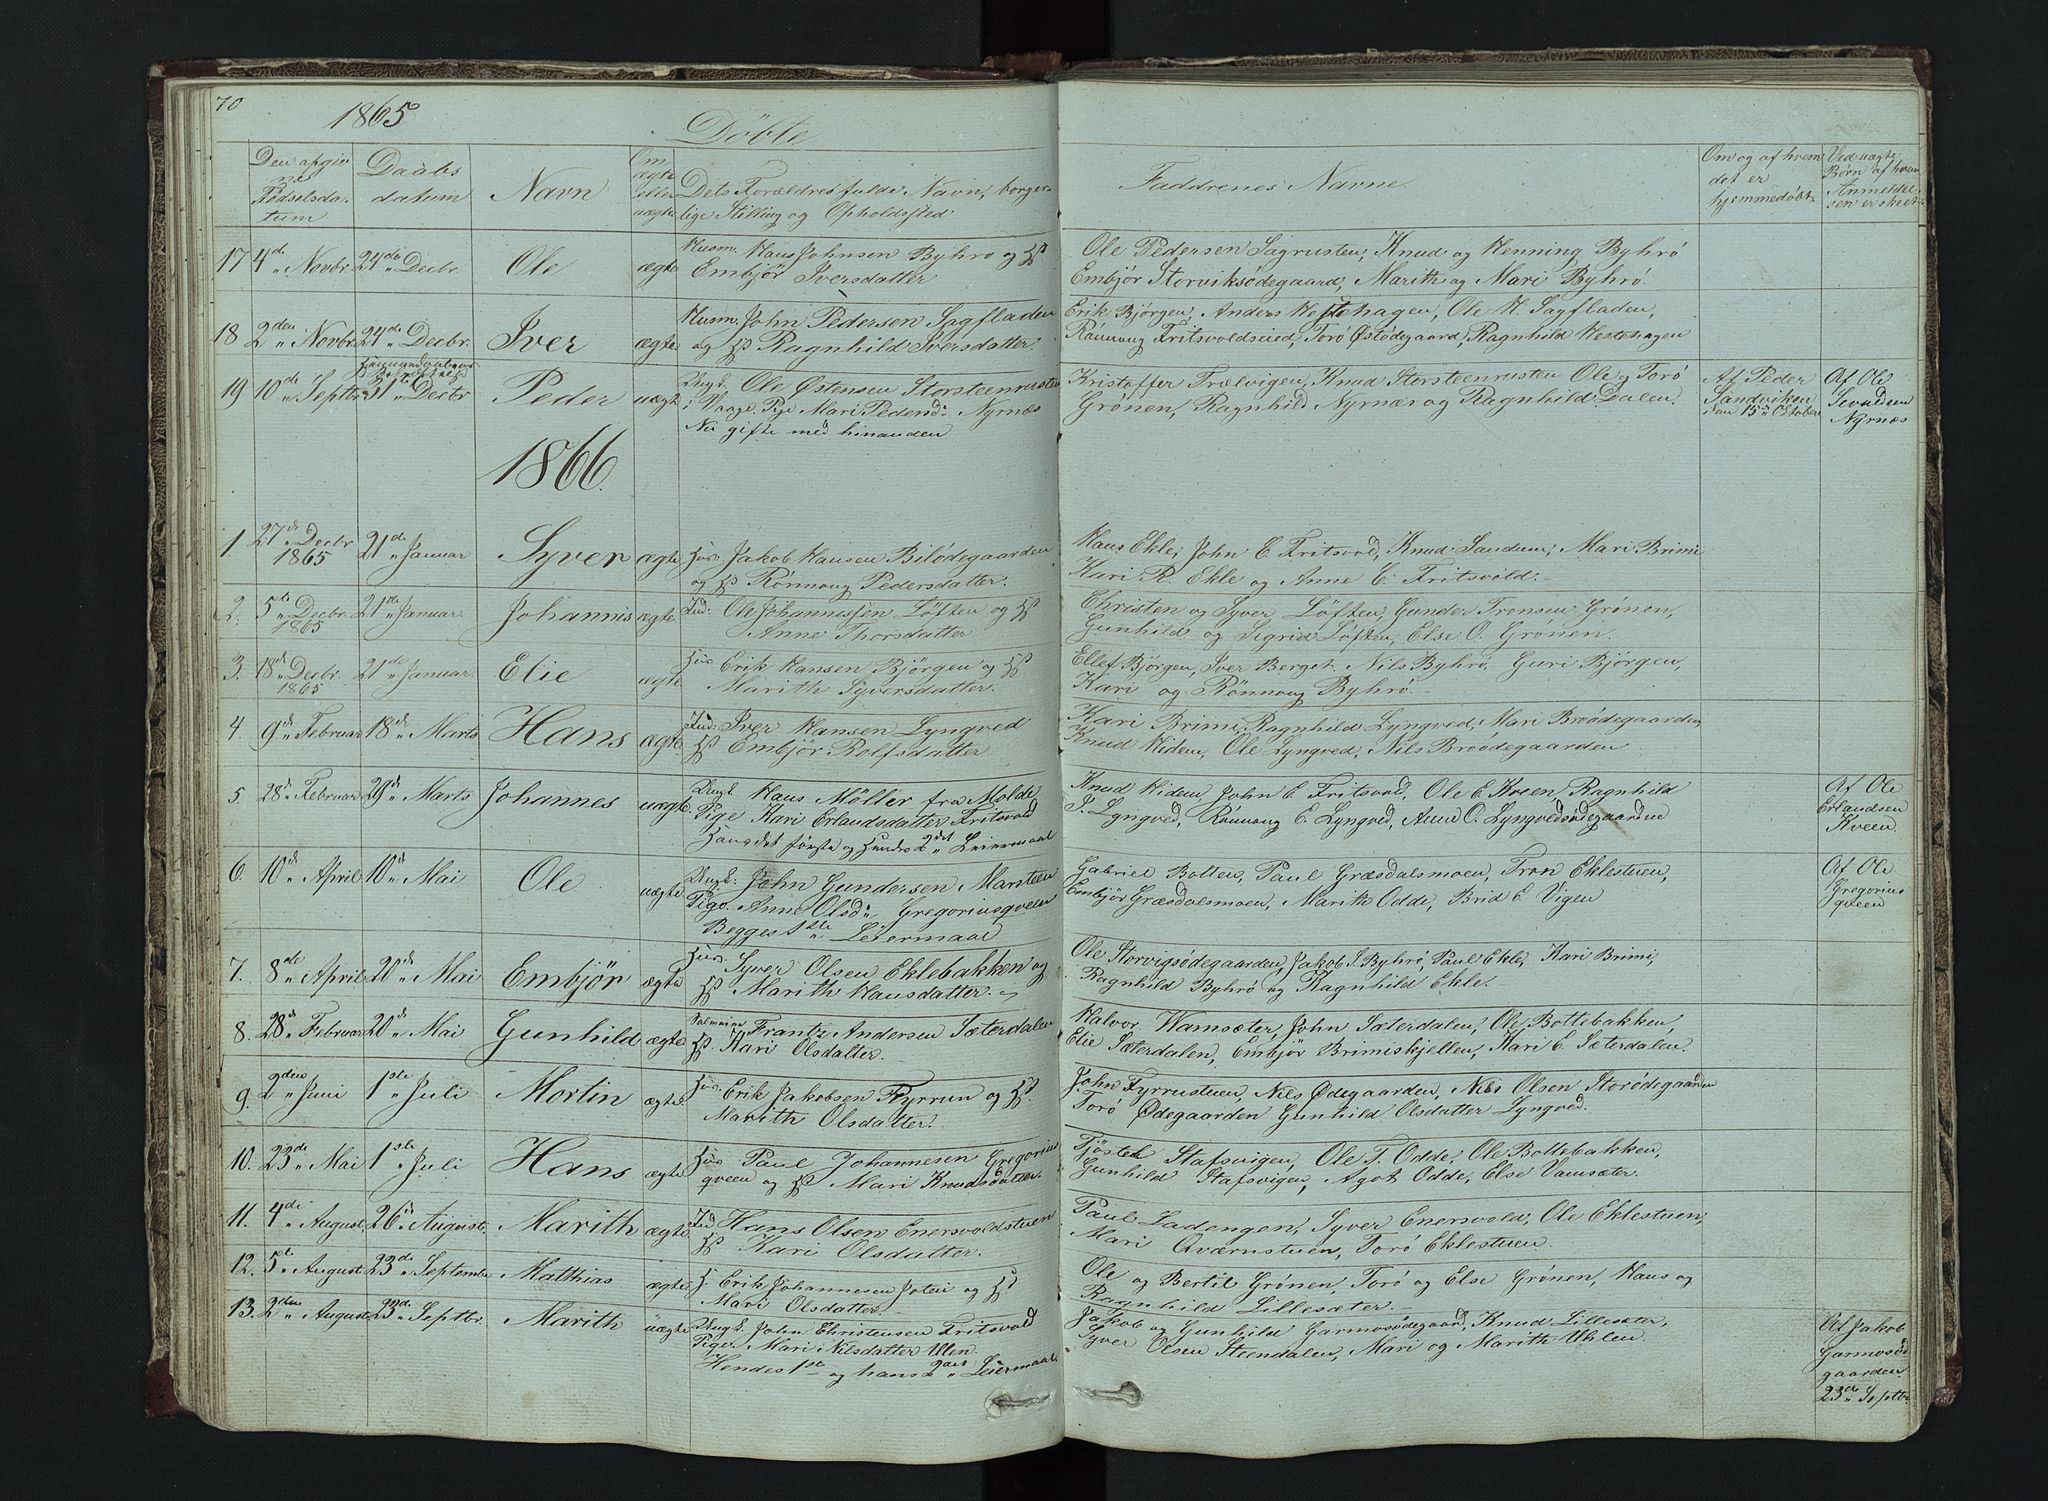 70
1865
Döbte
Den afgiv
ne
Födselsda-
tum
Daabs
datum
Navn
Om
ægte
eller
uægte
Dets Forældres fulde Navn, borger-
lige Stilling og Opholdssted
Faddrenes Navne
Om og af hvem
det er
hjemmedöbt.
Ved uægte
Börn af hvem
Anmeldel
sen er skeet.
17 4de Novbr. 24de Decbr. Ole ægte Husm. Hans Johnsen Byhrö og H
Embjör Iversdatter
Ole Pedersen Sagrusten, Knud og Henning Byhrö
Embjör Storviksödegaard, Marith og Mari Byhrö.
18 2den Novbr. 24de Decbr. Iver ægte Husm. John Pedersen Sagfladen
og H Ragnhild Iversdatter.
Erik Björgen, Anders Hestehagen, Ole H. Sagfladen,
Rönnoug Fritsvoldseied, Torö Östödegaard, Ragnhild Hestehagen
19 10de Septbr. 31te Decbr. Peder uægte Ungk. Ole Östensen Storsteenrusten
i Vaage. Pige Mari Pedersd. Nyrnæs
Nu gifte med hinanden
Kristoffer Trælvigen, Knud Storsteenrusten Ole og Torö
Grönen, Ragnhild Nyrnær og Ragnhild Dalen.
Af Peder
Sandviken
den 15de Oktober
Af Ole
Sevaldsen
Nyrnæs
1866.
1. 27de Decbr. 1865 21de Januar Syver ægte Hus: Jakob Hansen Bilödegaarden
og H Rönnoug Pedersdatter.
Hans Ekle, John E. Fritsvod, Knud Sandum, Mari Brimi
Kari R. Ekle og Anne E. Fritsvold.
2. 5te Decbr. 1865 21de Januar. Johannis ægte Ind: Ole Johannessen Löften og H
Anne Thorsdatter
Christen og Syver Löften, Gunder Tronsen Grönen,
Gunhild og Sigrid Löften, Else O. Grönen.
3. 18de Decbr. 1865 21de Januar. Elie ægte Hus Erik Hansen Björgen og H
Marith Syversdatter.
Ellef Björgen, Iver Berget. Nils Byhrö, Guri Björgen,
Kari og Rönnoug Byhrö.
4. 9de Februar 18de Marts Hans ægte Ind: Iver Hansen Lyngved
H Embjör Rolfsdatter
Kari Brimi, Ragnhild Lyngved, Mari Broödegaarden,
Knud Kidem, Ole Lyngved, Nils Broödegaarden
5. 28de Februar 29de Marts Johannes uægte Ungk Hans Möller fra Molde
Pige Kari Erlandsdatter Fritsvold
Hans det förste og Hendes 2det Leiermaal
Knud Kidem, John E. Fritsvod, Ole E. Kveen, Ragnhild
I. Lyngved, Rönnoug E. Lyngved, Anne O. Lyngvedsödegaarden
Af Ole
Erlandsen
Kveen.
6. 10de April 10de Mai Ole uægte Ungk: John Gundersen Marsteen
Pige Anne Olsd. Gregoriusqveen
Begges 1ste Leiermaal
Gabriel Botten, Paul Græsdalsmoen, Tron Eklestuen,
Embjör Græsdalsmoen, Marith Odde, Brid E. Vigen
Af Ole
Gregorius
qveen
7. 8de April 20de Mai Embjör ægte Hus. Syver Olsen Eklebakken og
H Marith Hansdatter.
Ole Storvigsödegaarden, Jakob S. Byhrö, Paul Ekle, Kari Brimi,
Ragnhild Byhrö og Ragnhild Ekle.
8. 28de Februar 20de Mai Gunhild ægte Frantz Andersen Sæterdalen
H. Kari Olsdatter.
Halvor Hamsæter, John Sæterdalen, Ole Bottebakken,
Elie Sæterdalen, Embjör Brimiskjellen, Kari E. Sæterdalen.
9. 2den Juni 1ste Juli Mortin ægte Hus. Erik Jakobsen Fyrrun og H.
Marith Olsdatter.
John Fyrrustuen, Nils Ödegaarden, Nils Olsen Storödegaarden
Torö Ödegaarden Gunhild Olsdatter Lyngved.
10. 23de Mai 1ste Juli Hans ægte Hus Paul Johannesen Gregorius
qveen og H Mari Knudsdatter.
Tjöstel Stafsvigen, Ole T. Odde, Ole Bottebakken,
Gunhild Stafsvigen, Agot Odde, Else Vamsæter.
11. 4de August. 26de August. Marith ægte Ind Hans Olsen Enersvoldstuen
H Kari Olsdatter.
Paul Ladongen, Syver Enersvold, Ole Eklestuen,
Mari Qværnstuen, Torö Eklestuen.
12. 5te August. 23de Septembr Matthias ægte H. Erik Johannesen Joten og H
Mari Olsdatter
Ole og Bertil Grönen, Torö og Else Grönen, Hans og
Ragnhild Lillesæter.
13. 2den August 23de Septbr. Marith uægte Ungk. John Christensen Fritsvold
Pige Mari Nilsdatter Ulen
Hendes 1ste og hans 2det Leiermaal.
Jakob og Gunhild Garmosödegaard, Knud Lillesæter,
Syver Olsen Steendalen, Mari og Marith Uhlen.
Af Jakob
Garmosöd
gaarden
23de Septbr.